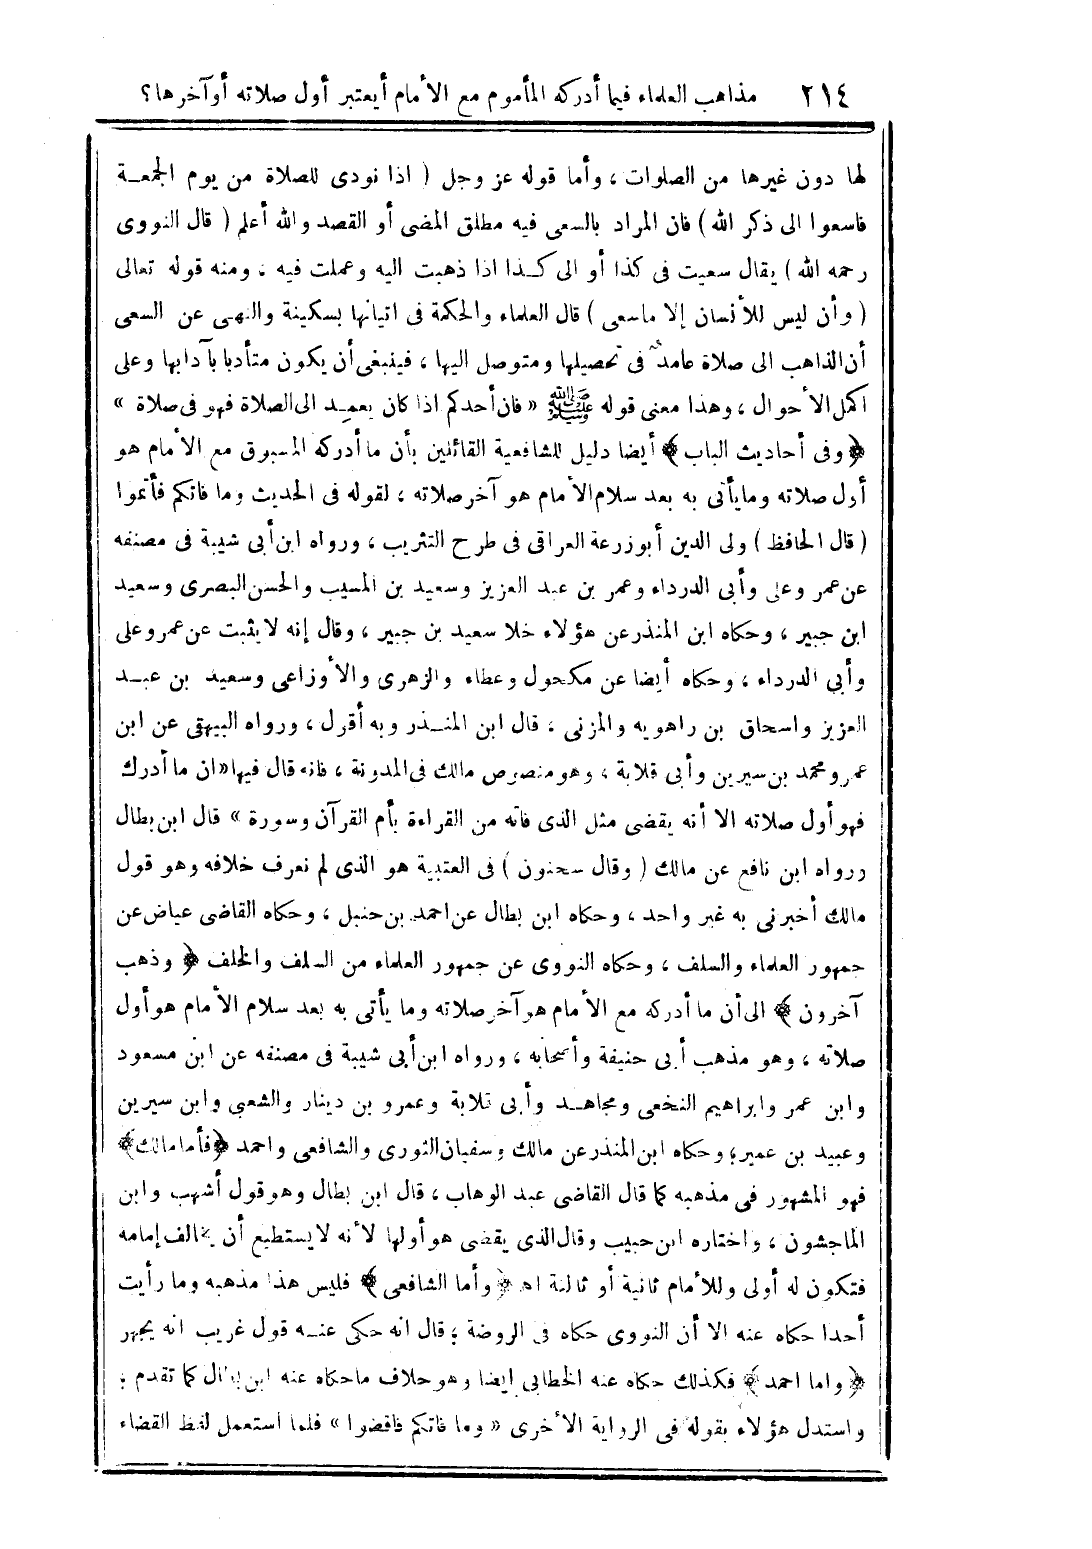 ٢١٤ مذاهب العلماء فيما أدركه المأموم مع الأمام أيعتبر أول صلاته أو آخرها؟
لها دون غيرها من الصلوات ، وأما قوله عز وجل ( اذا نودى للصلاة من يوم الجمعة
فاسعوا الى ذكر الله ) فان المراد بالسعى فيه مطلق المضى أو القصد والله أعلم ( قال النووى
رحمه الله ) يقال سعيت فى كذا أو الى كذا اذا ذهبت اليه وعملت فيه ، ومنه قوله تعالى
( وأن ليس للأنسان إلا ماسعى ) قال العلماء والحكمة فى اتيانها بسكينة والنهى عن السعى
أن الذاهب الى صلاة عامد فى تحصيلها ومتوصل اليها ، فينبغى أن يكون متأدبا بآدابها وعلى
اكمل الأحوال ، وهذا معنى قوله ﷺ « فان أحدكم اذا كان يعمد الى الصلاة فهو فى صلاة »
﴿ وفى أحاديث الباب ﴾ أيضا دليل للشافعية القائلين بأن ما أدركه المسبوق مع الأمام هو
أول صلاته ومايأتى به بعد سلام الأمام هو آخر صلاته ، لقوله فى الحديث وما فاتكم فأتموا
( قال الحافظ ) ولى الدين أبو زرعة العراقى فى طرح التثريب ، ورواه ابن أبى شيبة فى مصنفه
عن عمر وعلى وأبى الدرداء وعمر بن عبد العزيز وسعيد بن المسيب والحسن البصرى وسعيد
ابن جبير ، وحكاه ابن المنذر عن هؤلاء خلا سعيد بن جبير ، وقال إنه لا يثبت عن عمر وعلى
وأبى الدرداء ، وحكاه أيضا عن مكحول وعطاء والزهرى والأوزاعى وسعيد بن عبد
العزيز واسحاق بن راهويه والمزنى ، قال ابن المنذر وبه أقول ، ورواه البيهقى عن ابن
عمر ومحمد بن سيرين وأبى قلابة ، وهو منصوص مالك فى المدونة ، فانه قال فيها « ان ما أدرك
فهو أول صلاته الا أنه يقضى مثل الذى فاته من القراءة بأم القرآن وسورة » قال ابن بطال
ورواه ابن نافع عن مالك ( وقال سحنون ) فى العتبية هو الذى لم نعرف خلافه وهو قول
مالك أخبرنى به غير واحد ، وحكاه ابن بطال عن احمد بن حنبل ، وحكاه القاضى عياض عن
جمهور العلماء والسلف ، وحكاه النووى عن جمهور العلماء من السلف والخلف ﴿ وذهب
آخرون ﴾ الى أن ما أدركه مع الأمام هو آخر صلاته وما يأتى به بعد سلام الأمام هو أول
صلاته ، وهو مذهب أبى حنيفة وأصحابه ، ورواه ابن أبى شيبة فى مصنفه عن ابن مسعود
وابن عمر وابراهيم النخعى ومجاهد وأبى قلابة وعمرو بن دينار والشعبى وابن سيرين
وعبيد بن عمير ؛ وحكاه ابن المنذر عن مالك وسفيان الثورى والشافعى واحمد ﴿ فأما مالك ﴾
فهو المشهور فى مذهبه كما قال القاضى عبد الوهاب ، قال ابن بطال وهو قول أشهب وابن
الماجشون ، واختاره ابن حبيب وقال الذى يقضى هو أولها لأنه لا يستطيع أن يخالف إمامه
فتكون له أولى وللأمام ثانية أو ثالثة اهـ ﴿ وأما الشافعى ﴾ فليس هذا مذهبه وما رأيت
أحدا حكاه عنه الا أن النووى حكاه فى الروضة ؛ قال انه حكى عنه قول غريب انه يجهر
﴿ واما احمد ﴾ فكذلك حكاه عنه الخطابى ايضا وهو خلاف ماحكاه عنه ابن بطال كما تقدم ؛
واستدل هؤلاء بقوله فى الرواية الأخرى « وما فاتكم فاقضوا » فلما استعمل لفظ القضاء